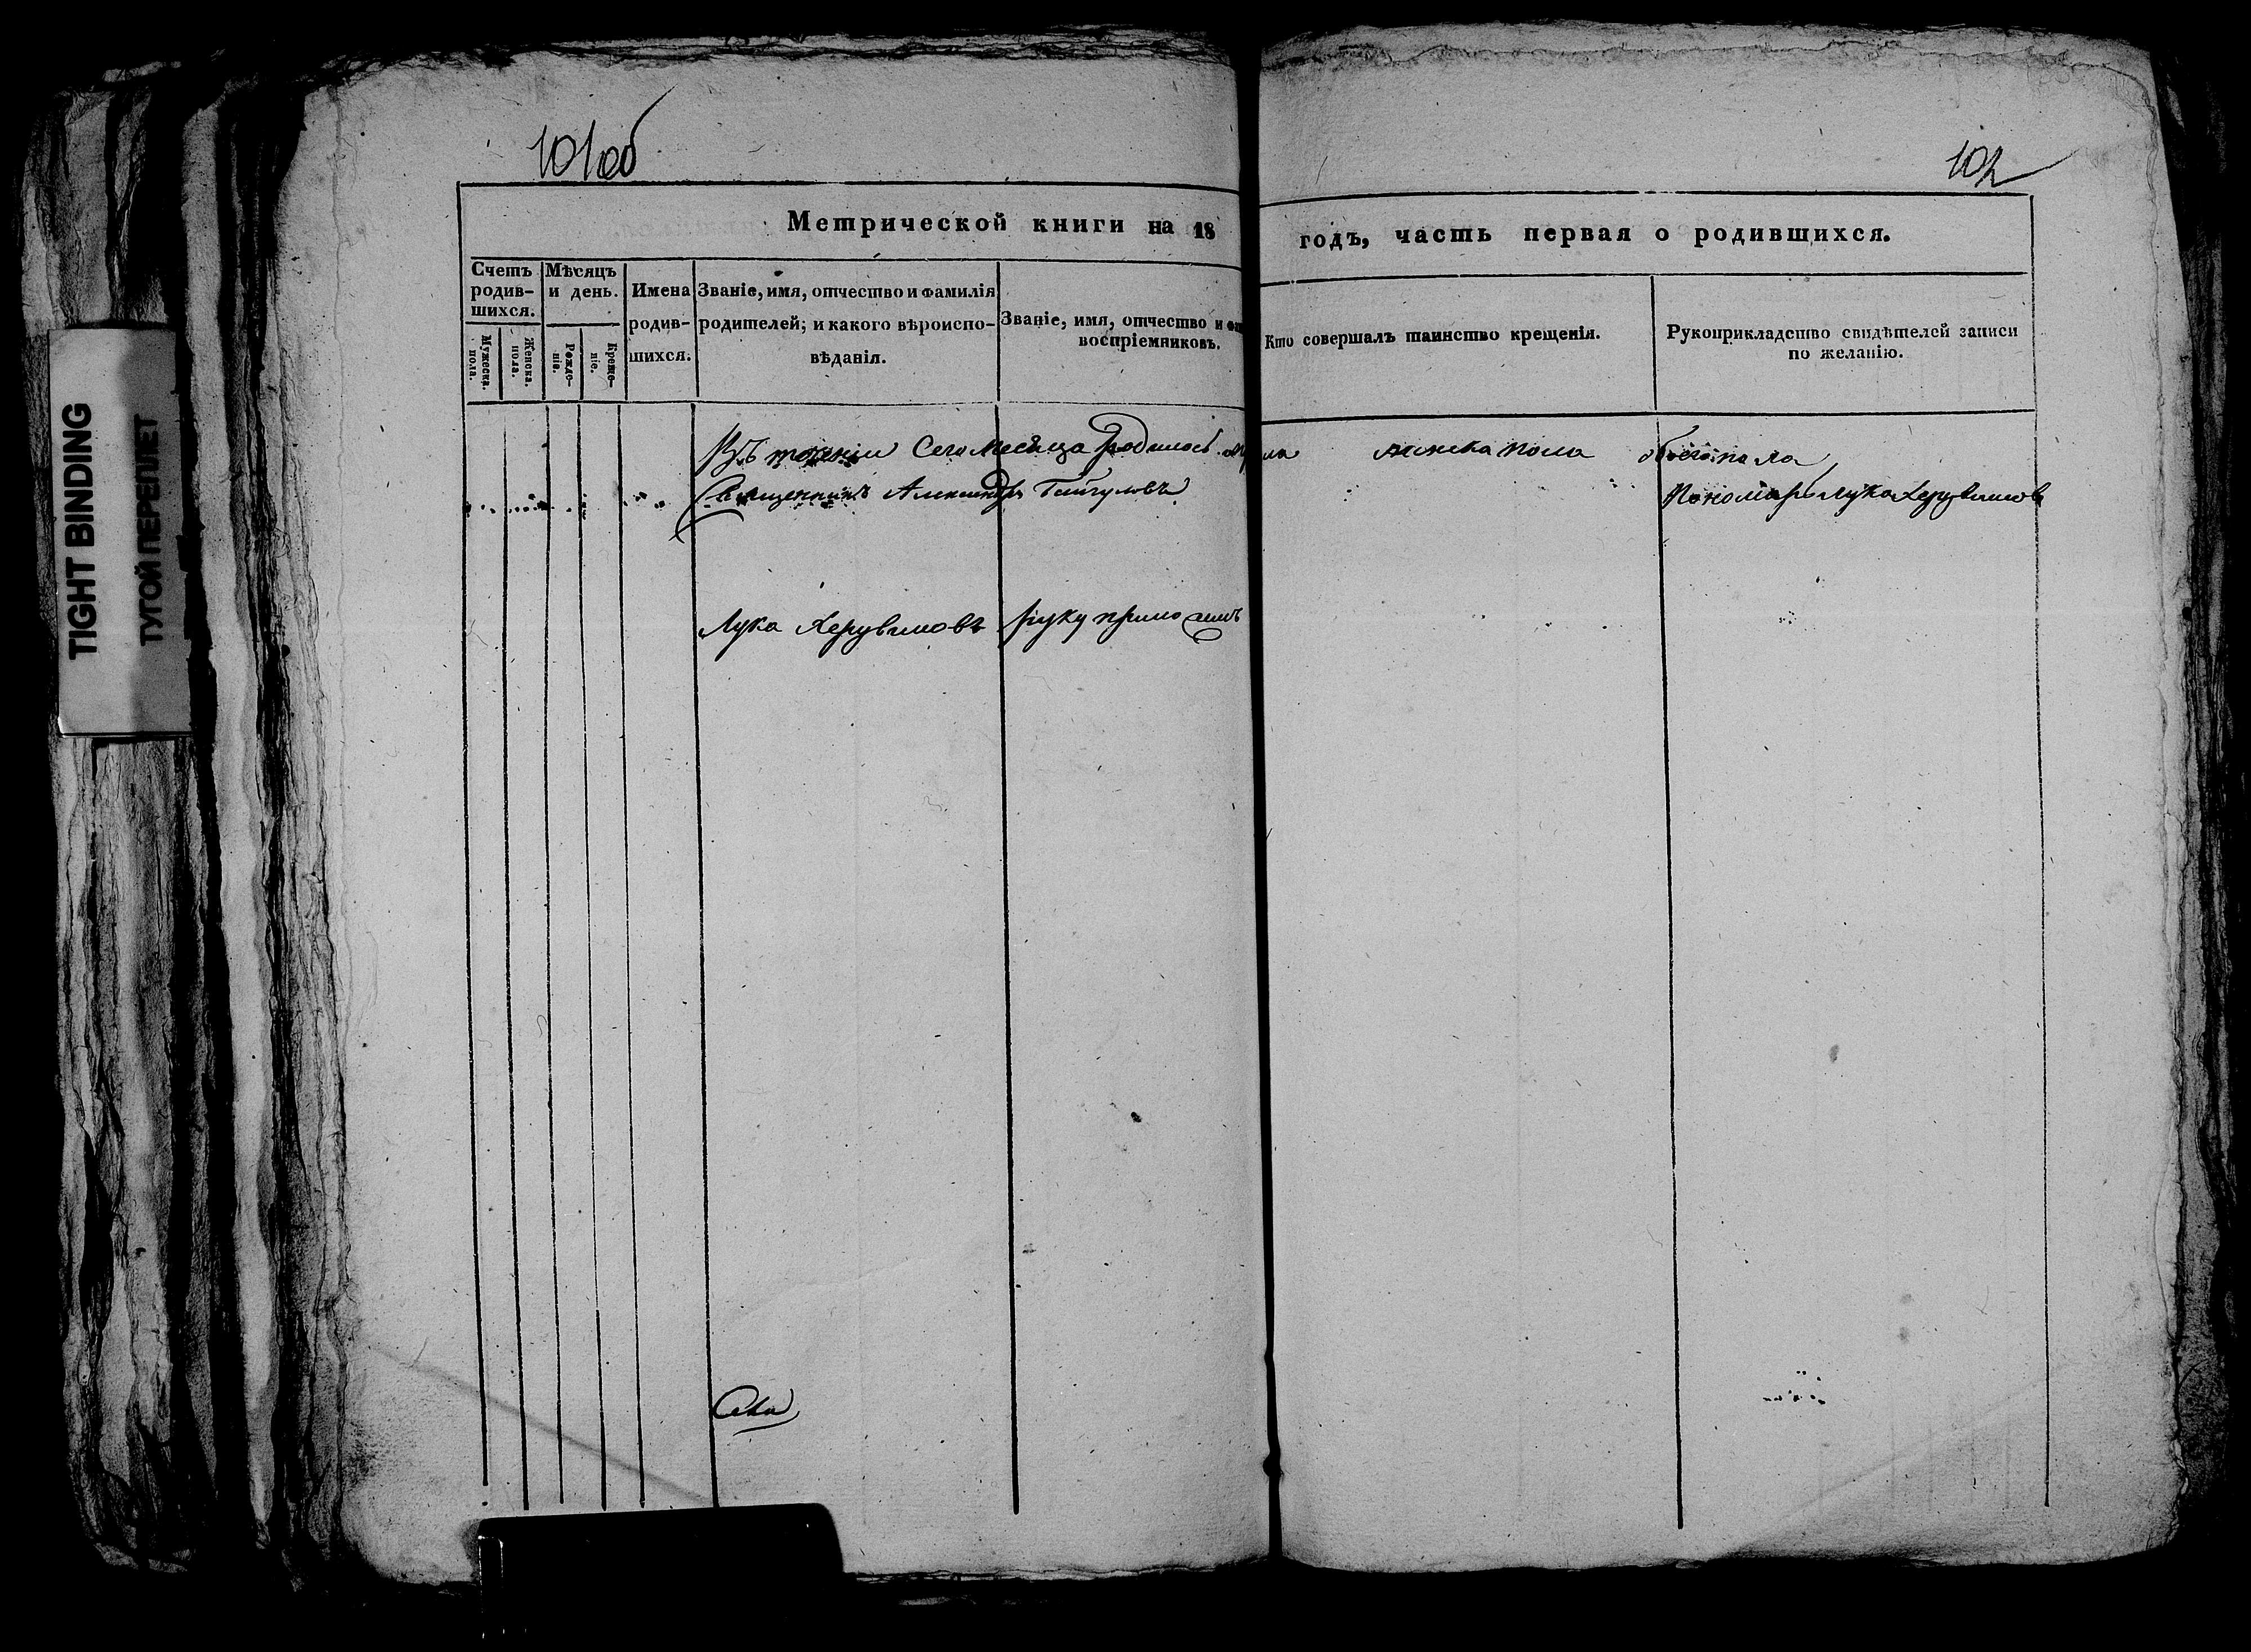 TIGHT BINDING
ТУГОЙ ПЕРЕПЛЕТ
101об
102
Метрической книги на 18 годъ, часть первая о родившихся.
Счетъ родив-шихся.
Мужеска. пола.
Женска. пола.
Мѣсяцъ и день.
Рожде-нія.
Креще-ніе.
Имена родив-шихся.
Званіе, имя, отчество и фамилія родителей; и какого вѣроиспо-вѣданія.
Званіе, имя, отчество и воспріемниковъ.
Кто совершалъ таинство крещенія.
Рукоприкладство свидѣтелей записи по желанію.
Въ теченіи Сего месяца родилось женска пола обоего пола
Священникъ Александръ
Пономарь Лука Херувимовъ
Лука Херувимовъ руку приложилъ